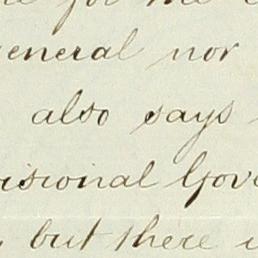 for me
general nor
also says
visional Gove
but there